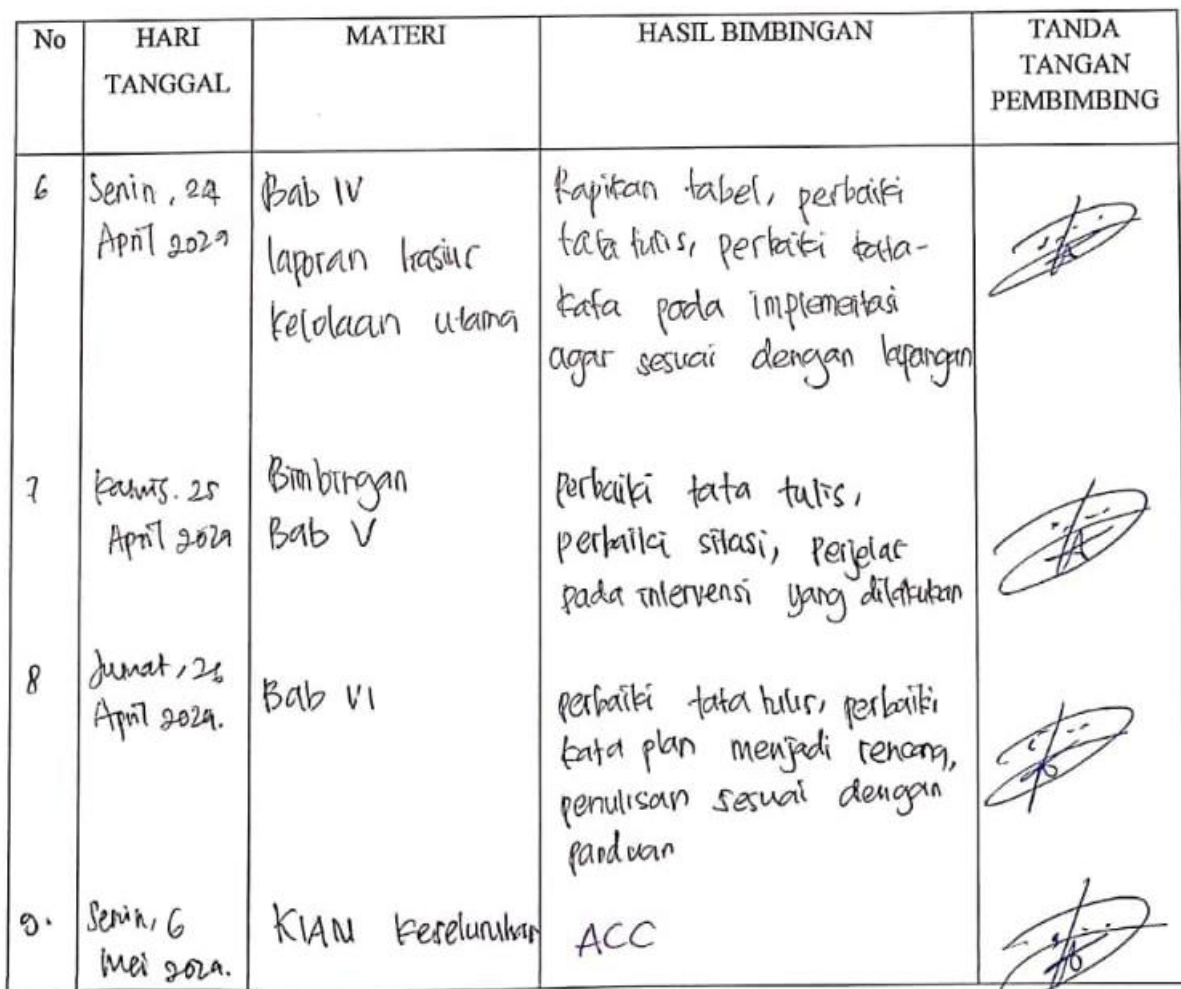 No HARI TANGGAL MATERI HASIL BIMBINGAN TANDA TANGAN PEMBIMBING
6 Senin, 24 April 2024 Bab IV Rapikan tabel, perbaiki
laporan kasus tata tulis, perbaiki kata-
kelolaan utama kata pada implementasi
agar sesuai dengan lapangan
7 Kamis. 25 April 2024 Bimbingan Bab V perbaiki tata tulis,
perbaiki sitasi, Perjelas
pada intervensi yang dilakukan
8 Jumat, 26 April 2024. Bab VI perbaiki tata tulis, perbaiki
kata plan menjadi rencana,
penulisan sesuai dengan
panduan
9. Senin, 6 Mei 2024. KIAN Keseluruhan ACC